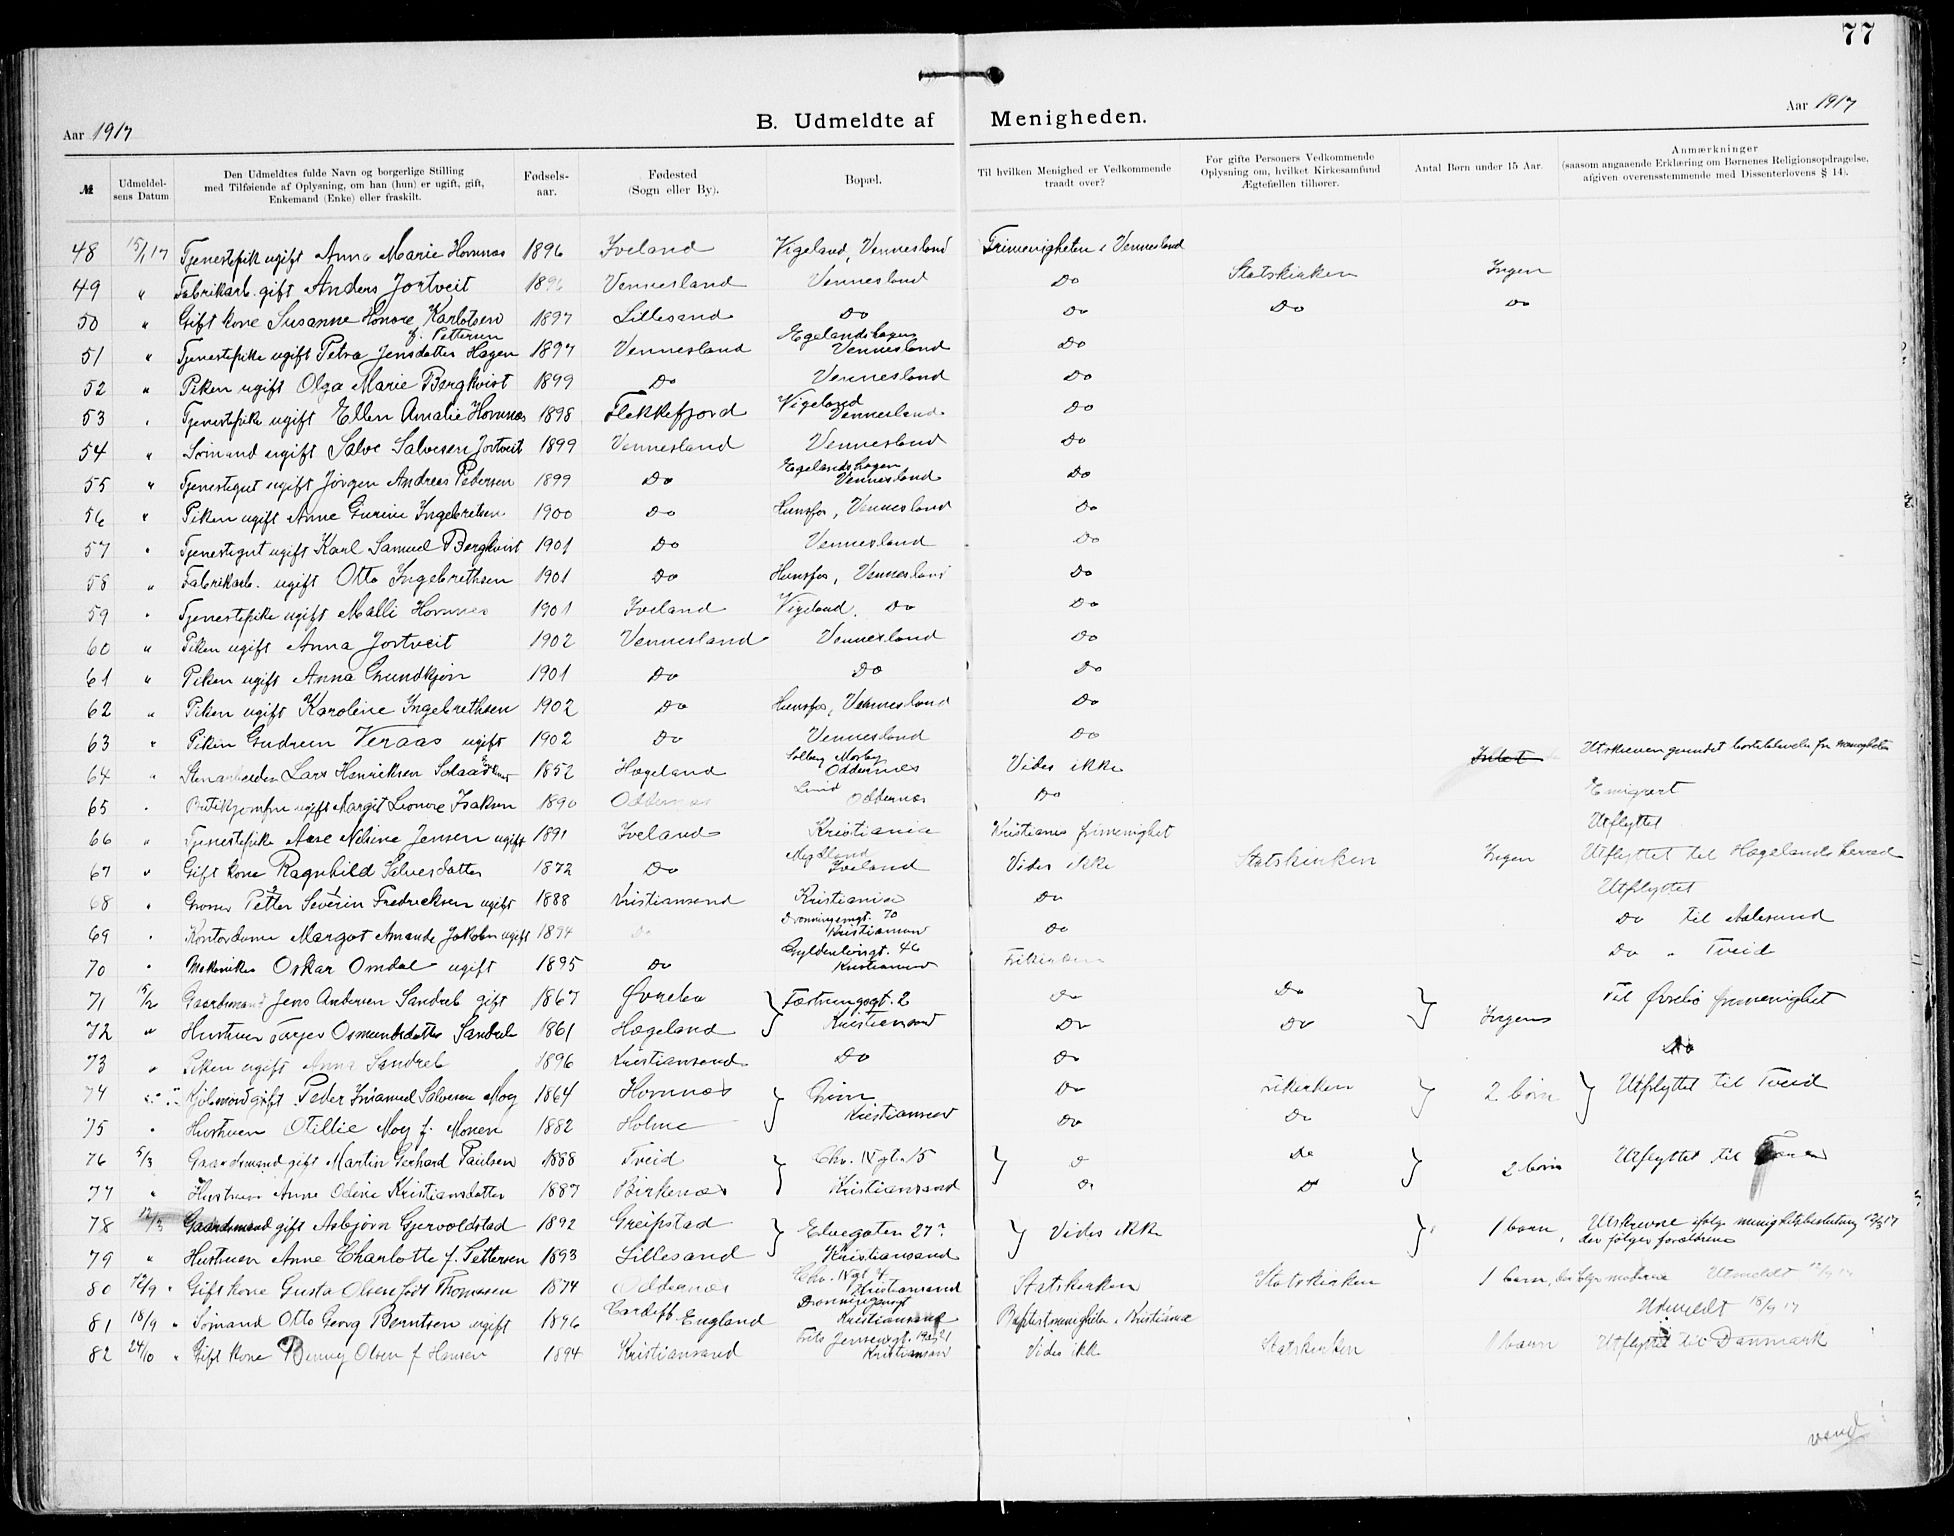 77
Aar 1917
B. Udmeldte af Menigheden.
Aar 1917
№ | Udmeldelsens Datum | Den Udmeldtes fulde Navn og borgerlige Stilling med Tilføiende af Oplysning, om han (hun) er ugift, gift, Enkemand (Enke) eller fraskilt. | Fødselsaar. | Fødested (Sogn eller By). | Bopæl. | Til hvilken Menighed er Vedkommende traadt over? | For gifte Personers Vedkommende Oplysning om, hvilket Kirkesamfund Ægtefællen tilhører. | Antal Børn under 15 Aar. | Anmærkninger (saasom angaaende Erklæring om Børnenes Religionsopdragelse, afgiven overensstemmende med Dissenterlovens § 14).
48 15/1 17 Tjenestepik ugift Anna Marie Hornnes 1896 Iveland Vigeland, Vennesland Frimenigheten i Vennesland
49 " Fabrikarb. gift Anders Jortveit 1896 Vennesland Vennesland Do Statskirken Ingen
50 " Gift kone Susanne Honore Karlotsen f. Pettersen 1897 Lillesand Do Do Do Do
51 " Tjenestepike ugift Petra Jensdatter Hagen 1897 Vennesland Egelandshagen Vennesland Do
52 " Piken ugift Olga Marie Bergkvist 1899 Do Vennesland Do
53 " Tjenestepike ugift Ellen Amalie Hornnes 1898 Flekkefjord Vigeland Vennesland Do
54 " Sømand ugift Salve Salvesen Jortveit 1899 Vennesland Vennesland Do
55 " Tjenestegut ugift Jørgen Andreas Pedersen 1899 Do Egelandshagen Vennesland Do
56 " Piken ugift Anne Gurine Ingebretsen 1900 Do Hunsfos, Vennesland Do
57 " Tjenestegut ugift Karl Samuel Bergkvist 1901 Do Vennesland Do
58 " Fabrikarb. ugift Otto Ingebrethsen 1901 Do Hunsfos, Vennesland Do
59 " Tjenestepike ugift Malli Hornnes 1901 Iveland Vigeland. Do Do
60 " Piken ugift Anna Jortveit 1902 Vennesland Vennesland Do
61 " Piken ugift Anna Grundkjøn 1901 Do Do Do
62 " Piken ugift Karoline Ingebrethsen 1902 Do Hunsfos, Vennesland Do
63 " Piken Gudrun Veraas ugift 1902 Do Vennesland Do
64 " Stenarbeider Lars Henriksen 1852 Hægeland Solberg Mosby Oddernes Vides ikke Utskreven grundet fra menigheten
65 " Butikjomfru ugift Margit Leonore Isaksen 1890 Oddernes Lund Oddernes Do Emigrert
66 " Tjenestepike Aase Neline Jensen ugift 1891 Iveland Kristiania Kristiania frimenighet Utflyttet
67 " Gift kone Ragnhild Salvesdatter 1872 Do Iveland Vides ikke Statskirken Ingen Utflyttet til Hægelands herred
68 " Petter Severin Fredricksen ugift 1888 Kristiansand Kristiania Do Utflyttet
69 " Kontordame Margot Amanda Jakobsen ugift 1894 Do Dronningensgt. 70 Kristiansand Do Do til Aalesund
70 " Mekaniker Oskar Omdal ugift 1895 Do Gyldenløvesgt. 46 Kristiansand Frikirken Do " Tveid
71 15/2 Gaardsmand Jens Andersen Sandreb gift 1867 Øvrebø } Festningsgt. 2 Do Do } Til Øvrebø frimenighet
72 " Hustruen Torjer Osmundsdatter Sandreb 1861 Hægeland } Kristiansand Do Do } Ingen
73 " Piken ugift Anna Sandreb 1896 Kristiansand Do Do Do
74 " gift Peder Imanuel Salvesen Moy 1864 Hornnes } Grim Do Frikirken } 2 børn } Utflyttet til Tveid
75 " Hustruen Otillie Moy f. Monen 1882 Holme } Kristiansand Do Do
76 5/3 Gaardsmand gift Martin Gerhard Paulsen 1888 Tveid } Chr. IV gt. 15 } Do Do } 2 børn Utflyttet til
77 " Hustruen Anne Odine Kristiansdatter 1887 Birkenes } Kristiansand Do Do
78 12/3 Gaardsmand gift Asbjørn Gjervoldstad 1892 Greipstad } Elvegaten 27 } Vides ikke } 1 barn, Utskrevne ifølge menighetsbeslutning 12/3 17
der følger forældrene
79 " Hustruen Anne Charlotte f. Pettersen 1893 Lillesand } Kristiansand
80 12/9 " Gift kone Gusta Olsen født Thomassen 1874 Oddernes Chr. IV gt 4 Kristiansand Statskirken Statskirken 1 barn, der følger moderen Utmeldt 12/9 17
81 18/9 " Sømand Otto Georg Berntsen ugift 1896 Cardiff England Dronningensgt Kristiansand Baptistmenigheten i Kristiania Utmeldt 18/9 17
82 24/10 " Gift kone Benny Olsen f Hansen 1894 Kristiansand Frits Jensensgt. 21 Kristiansand Vides ikke Statskirken 1 barn Utflyttet til Danmark
vend